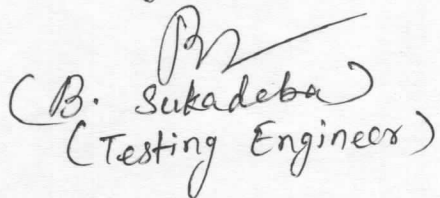 (B. Sukadeba)
(Testing Engineer)